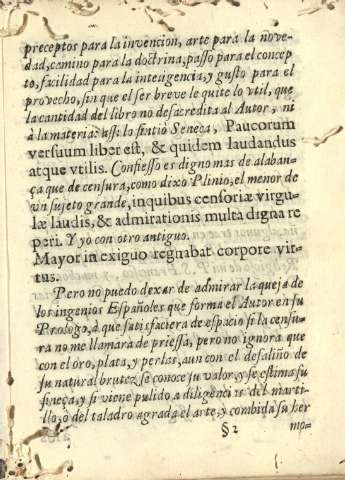 preceptos para la invencion, arte para la nove-
dad, camino para la doctrina, passo para el concep
to, facilidad para la inteligencia, y gusto para el
provecho, sin que el ser breve le quite lo vtil, que
la cantidad del libro no desacredita al Autor, ni
à la materia: assi lo sintiò Seneca, Paucorum
versuum liber est, & quidem laudandus
atque vtilis. Confiesso es digno mas de alaban-
ça que de censura, como dixo Plinio, el menor de
vn sujeto grande, in quibus censoriæ virgu-
læ laudis, & admirationis multà digna re
peri. Y yo con otro antiguo.
Mayor in exiguo regnabat corpore vir-
tus.
Pero no puedo dexar de admirar la queja de
los ingenios Españoles que forma el Autor en su
Prologo, à que satisfaciera de espacio si la censu-
ra no me llamàra de priessa, pero no ignora que
con el oro, plata, y perlas, aun con el desaliño de
su natural brutez, se conoce su valor, y se estima su
fineça, y si viene pulido a diligencias del marti-
llo, ò del taladro agrada el arte, y combida su her
§ 2 mo-